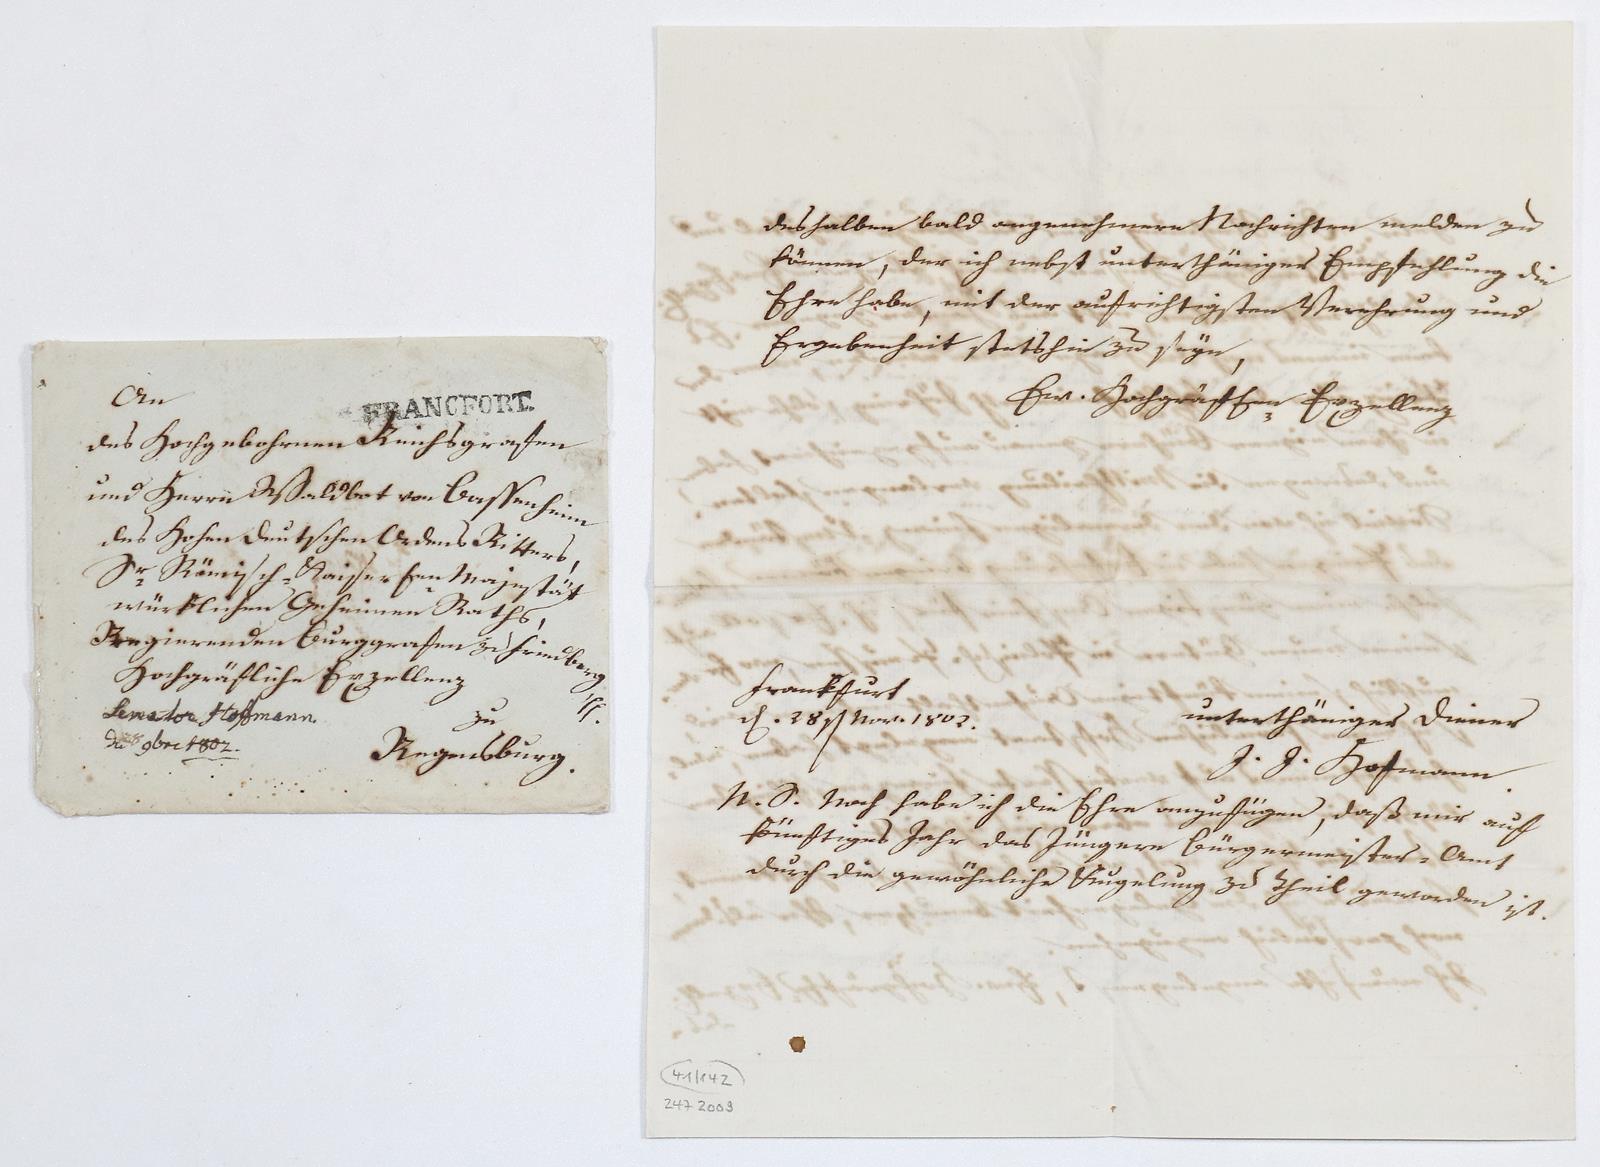 FRANCFORT.
An
des Hochgebohrnen Reichsgrafen
und Herrn Waldbot von Bassenheim
des Hohen Deutschen Ordens Ritters,
Sr. Römisch-Kaiserlen Majestät
würklichen Geheimen Raths,
Regierenden Burggrafen zu Friedberg
Hochgräfliche Exzellenz
zu
Regensburg.
Senator Hoffmann.
9bre 1802.
deshalben bald angenehmere Nachrichten melden zu
können, der ich nebst unterthäniger Empfehlung die
Ehre habe, mit der aufrichtigsten Verehrung und
Ergebenheit stetshin zu seyn,
Ew. Hochgräflen Exzellenz
Frankfurt
d. 28 Nov. 1802.
unterthäniger Diener
J. J. Hofmann
N. S. Noch habe ich die Ehre anzufügen, daß mir auf
künftiges Jahr das Jüngere Bürgermeister-Amt
durch die gewöhnliche Kugelung zu theil geworden ist.
41/142
247 2009